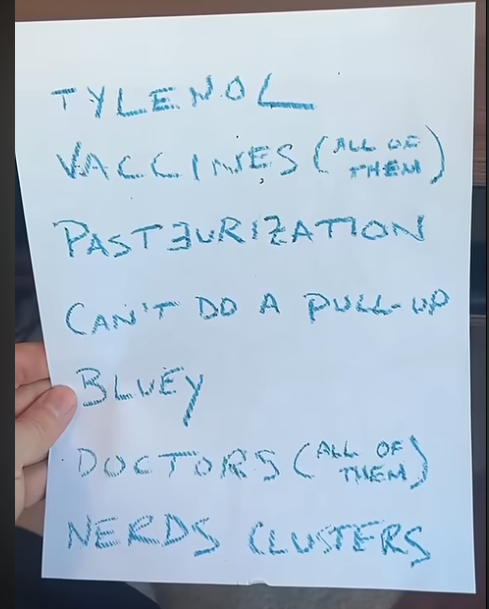 TYLENOL
VACCINES (ALL OF THEM)
PASTEURIZATION
CAN'T DO A PULL-UP
BLUEY
DOCTORS (ALL OF THEM)
NERDS CLUSTERS